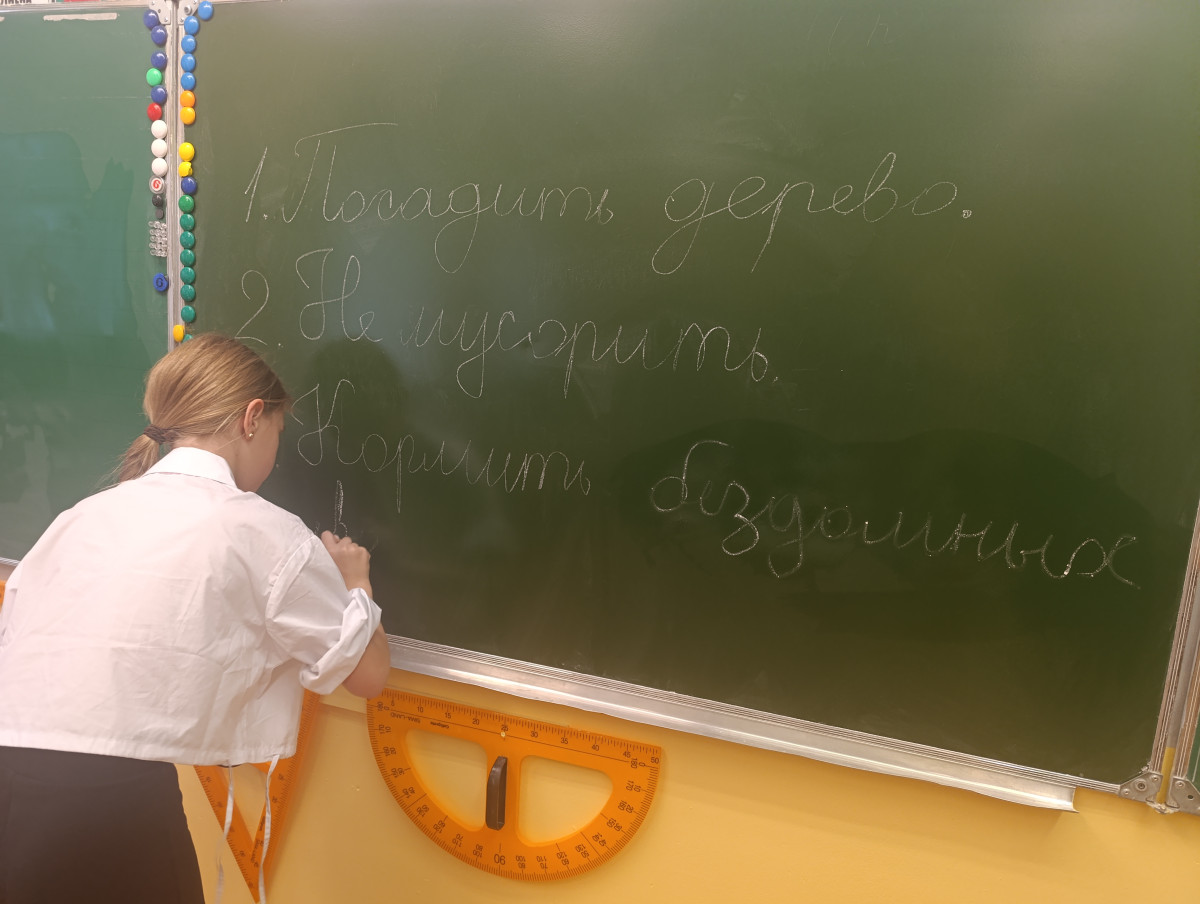 1. Посадить дерево.
2. Не мусорить.
Кормить бездомных